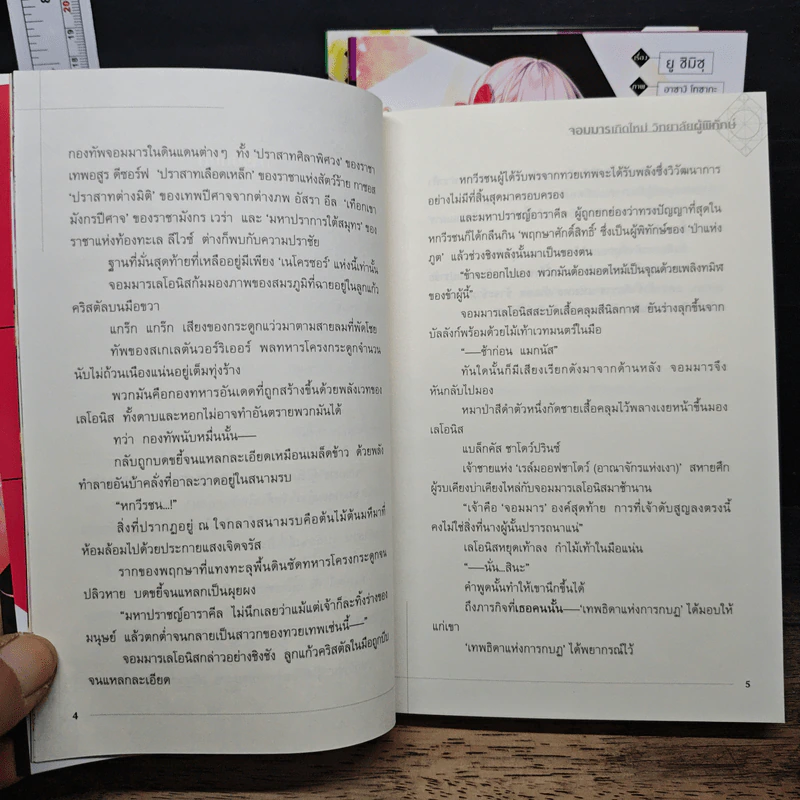 เรื่อง
ยู ชิมิซุ
ภาพ
อาซางิ โทซากะ
กองทัพจอมมารในดินแดนต่างๆ ทั้ง 'ปราสาทศิลาพิศวง' ของราชา
เทพอสูร ดีซอร์ฟ 'ปราสาทเลือดเหล็ก' ของราชาแห่งสัตว์ร้าย กาซอส
'ปราสาทต่างมิติ' ของเทพปีศาจจากต่างภพ อัสรา อีล 'เทือกเขา
มังกรปีศาจ' ของราชามังกร เวร่า และ 'มหาปราการใต้สมุทร' ของ
ราชาแห่งท้องทะเล ลีไวซ์ ต่างก็พบกับความปราชัย
ฐานที่มั่นสุดท้ายที่เหลืออยู่มีเพียง 'เนโครซอร์' แห่งนี้เท่านั้น
จอมมารเลโอนิสก้มมองภาพของสมรภูมิที่ฉายอยู่ในลูกแก้ว
คริสตัลบนมือขวา
แกร๊ก แกร๊ก เสียงของกระดูกแว่วมาตามสายลมที่พัดโชย
ทัพของสเกเลตันวอร์ริเออร์ พลทหารโครงกระดูกจำนวน
นับไม่ถ้วนเนืองแน่นอยู่เต็มทุ่งร้าง
พวกมันคือกองทหารอันเดตที่ถูกสร้างขึ้นด้วยพลังเวทของ
เลโอนิส ทั้งดาบและหอกไม่อาจทำอันตรายพวกมันได้
ทว่า กองทัพนับหมื่นนั้น——
กลับถูกบดขยี้จนแหลกละเอียดเหมือนเมล็ดข้าว ด้วยพลัง
ทำลายอันบ้าคลั่งที่อาละวาดอยู่ในสนามรบ
"หกวีรชน...!"
สิ่งที่ปรากฏอยู่ ณ ใจกลางสนามรบคือต้นไม้ต้นมหึมาที่
ห้อมล้อมไปด้วยประกายแสงเจิดจรัส
รากของพฤกษาที่แทงทะลุพื้นดินซัดทหารโครงกระดูกจน
ปลิวหาย บดขยี้จนแหลกเป็นผุยผง
"มหาปราชญ์อาราคีล ไม่นึกเลยว่าแม้แต่เจ้าก็ละทิ้งร่างของ
มนุษย์ แล้วตกต่ำจนกลายเป็นสาวกของทวยเทพเช่นนี้——"
จอมมารเลโอนิสกล่าวอย่างชิงชัง ลูกแก้วคริสตัลในมือถูกบีบ
จนแหลกละเอียด
4
จอมมารเกิดใหม่ วิทยาลัยผู้พิทักษ์
หกวีรชนผู้ได้รับพรจากทวยเทพจะได้รับพลังซึ่งวิวัฒนาการ
อย่างไม่มีที่สิ้นสุดมาครอบครอง
และมหาปราชญ์อาราคีล ผู้ถูกยกย่องว่าทรงปัญญาที่สุดใน
หกวีรชนก็ได้กลืนกิน 'พฤกษาศักดิ์สิทธิ์' ซึ่งเป็นผู้พิทักษ์ของ 'ป่าแห่ง
ภูต' แล้วช่วงชิงพลังนั้นมาเป็นของตน
"ข้าจะออกไปเอง พวกมันต้องมอดไหม้เป็นจุณด้วยเพลิงทมิฬ
ของข้าผู้นี้"
จอมมารเลโอนิสสะบัดเสื้อคลุมสีนิลกาฬ ยันร่างลุกขึ้นจาก
บัลลังก์พร้อมด้วยไม้เท้าเวทมนตร์ในมือ
"——ช้าก่อน แมกนัส"
ทันใดนั้นก็มีเสียงเรียกดังมาจากด้านหลัง จอมมารจึง
หันกลับไปมอง
หมาป่าสีดำตัวหนึ่งกัดชายเสื้อคลุมไว้พลางเงยหน้าขึ้นมอง
เลโอนิส
แบล็กคัส ชาโดว์ปรินซ์
เจ้าชายแห่ง 'เรล์มออฟชาโดว์ (อาณาจักรแห่งเงา)' สหายศึก
ผู้รบเคียงบ่าเคียงไหล่กับจอมมารเลโอนิสมาช้านาน
"เจ้าคือ 'จอมมาร' องค์สุดท้าย การที่เจ้าดับสูญลงตรงนี้
คงไม่ใช่สิ่งที่นางผู้นั้นปรารถนาแน่"
เลโอนิสหยุดเท้าลง กำไม้เท้าในมือแน่น
"——นั่น...สินะ"
คำพูดนั้นทำให้เขานึกขึ้นได้
ถึงภารกิจที่เธอคนนั้น——'เทพธิดาแห่งการกบฏ' ได้มอบให้
แก่เขา
'เทพธิดาแห่งการกบฏ' ได้พยากรณ์ไว้
5